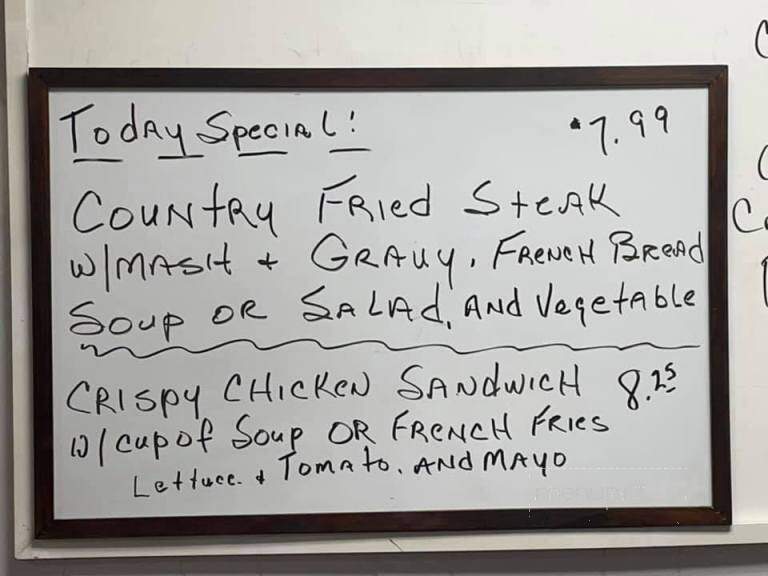 Today Special! 7.99
Country Fried Steak
w/Mash + Gravy, French Bread
Soup or Salad, and Vegetable
Crispy Chicken Sandwich 8.25
w/cup of Soup or French Fries
Lettuce + Tomato. and Mayo